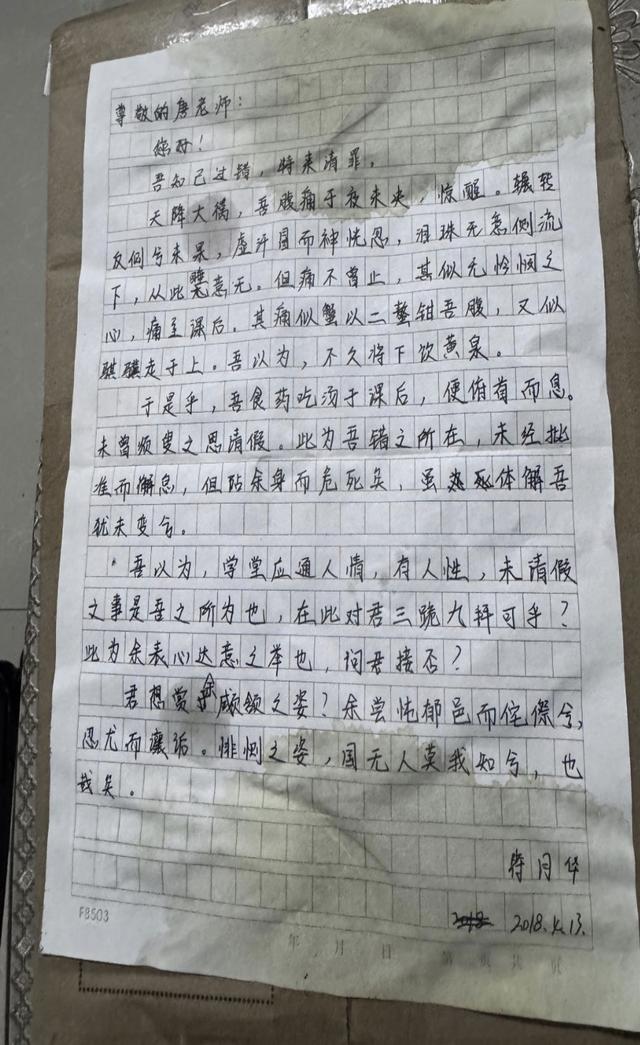 尊敬的唐老师：
您好！
吾知己过错，特来请罪。
天降大祸，吾腹痛于夜未央，惊醒。辗转
反侧兮未果，虚汗冒而神恍忽，泪珠无意侧流
下，从此意无。但痛不曾止，其似无怜悯之
心，痛至课后。其痛似蟹以二螯钳吾腹，又似
骐骥走于上。吾以为，不久将下饮黄泉。
于是乎，吾食药吃汤于课后，便俯首而息。
未曾须臾之思请假。此为吾错之所在，未经批
准而懈息，但阽余身而危死矣，虽体解吾
犹未变兮。
吾以为，学堂应通人情，有人性，未请假
之事是吾之所为也，在此对君三跪九拜可乎？
此为余表心达意之举也，问君接否？
君想赏余顑颔之姿？余尝忳郁邑而侘傺兮，
忍尤而攘诟。悱恻之姿，国无人莫我知兮，也
哉矣。
月华
2018.4.13.
F8503
年 月 日 第 页 共 页